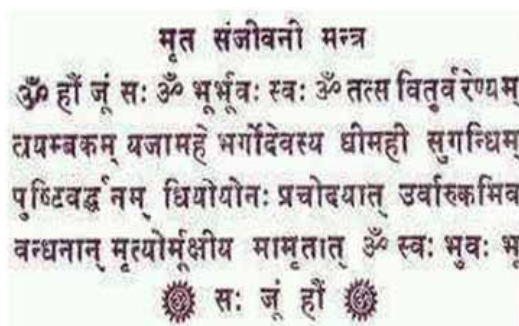 मृत संजीवनी मन्त्र
ॐ हौं जूं सः ॐ भूर्भूवः स्वः ॐ तत्स वितुर्वरेण्यम्
त्रयम्बकम् यजामहे भर्गोदेवस्य धीमही सुगन्धिम्
पुष्टिवर्द्धनम् धियोयोनः प्रचोदयात् उर्वारुकमिव
वन्धनान् मृत्योर्मूक्षीय मामृतात् ॐ स्वः भुवः भू
ॐ सः जूं हौं ॐ